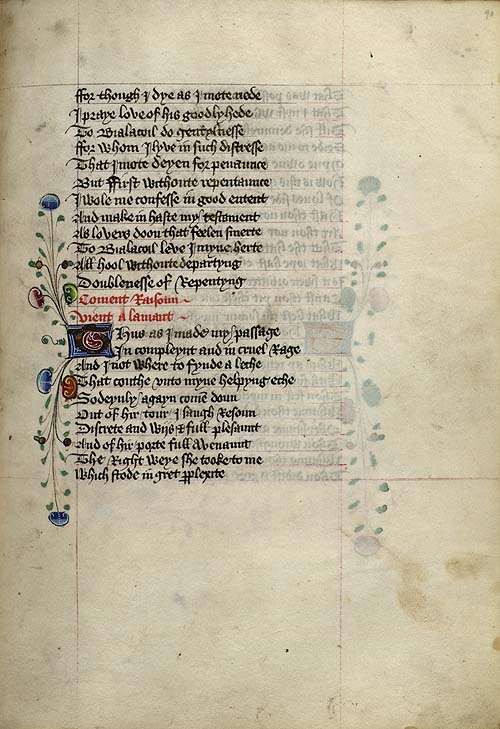 ffor though I dye as I mote nede
I praye love of his goodlyhede
To Bialacoil do gentylnesse
ffor whom I lyve in such distresse
That I mote deyen for penaunce
But ffirst withoute repentaunce
I wole me confesse in good entent
And make in haste my testament
As lovers doon that feelen smerte
To Bialacoil leve I myne herte
All hool withoute departyng
Doublenesse of Repentyng
Coment Raisoun
vient a lamant
Thus as I made my passage
In compleynt and in cruel Rage
And I not where to fynde a leche
That couthe vnto myne helpyng eche
Sodeynly agayn comen doun
Out of hir tour I saugh Resoun
Discrete and wijs & full plesaunt
And of hir porte full avenaunt
The Right weye she tooke to me
Which stode in gret pplexite